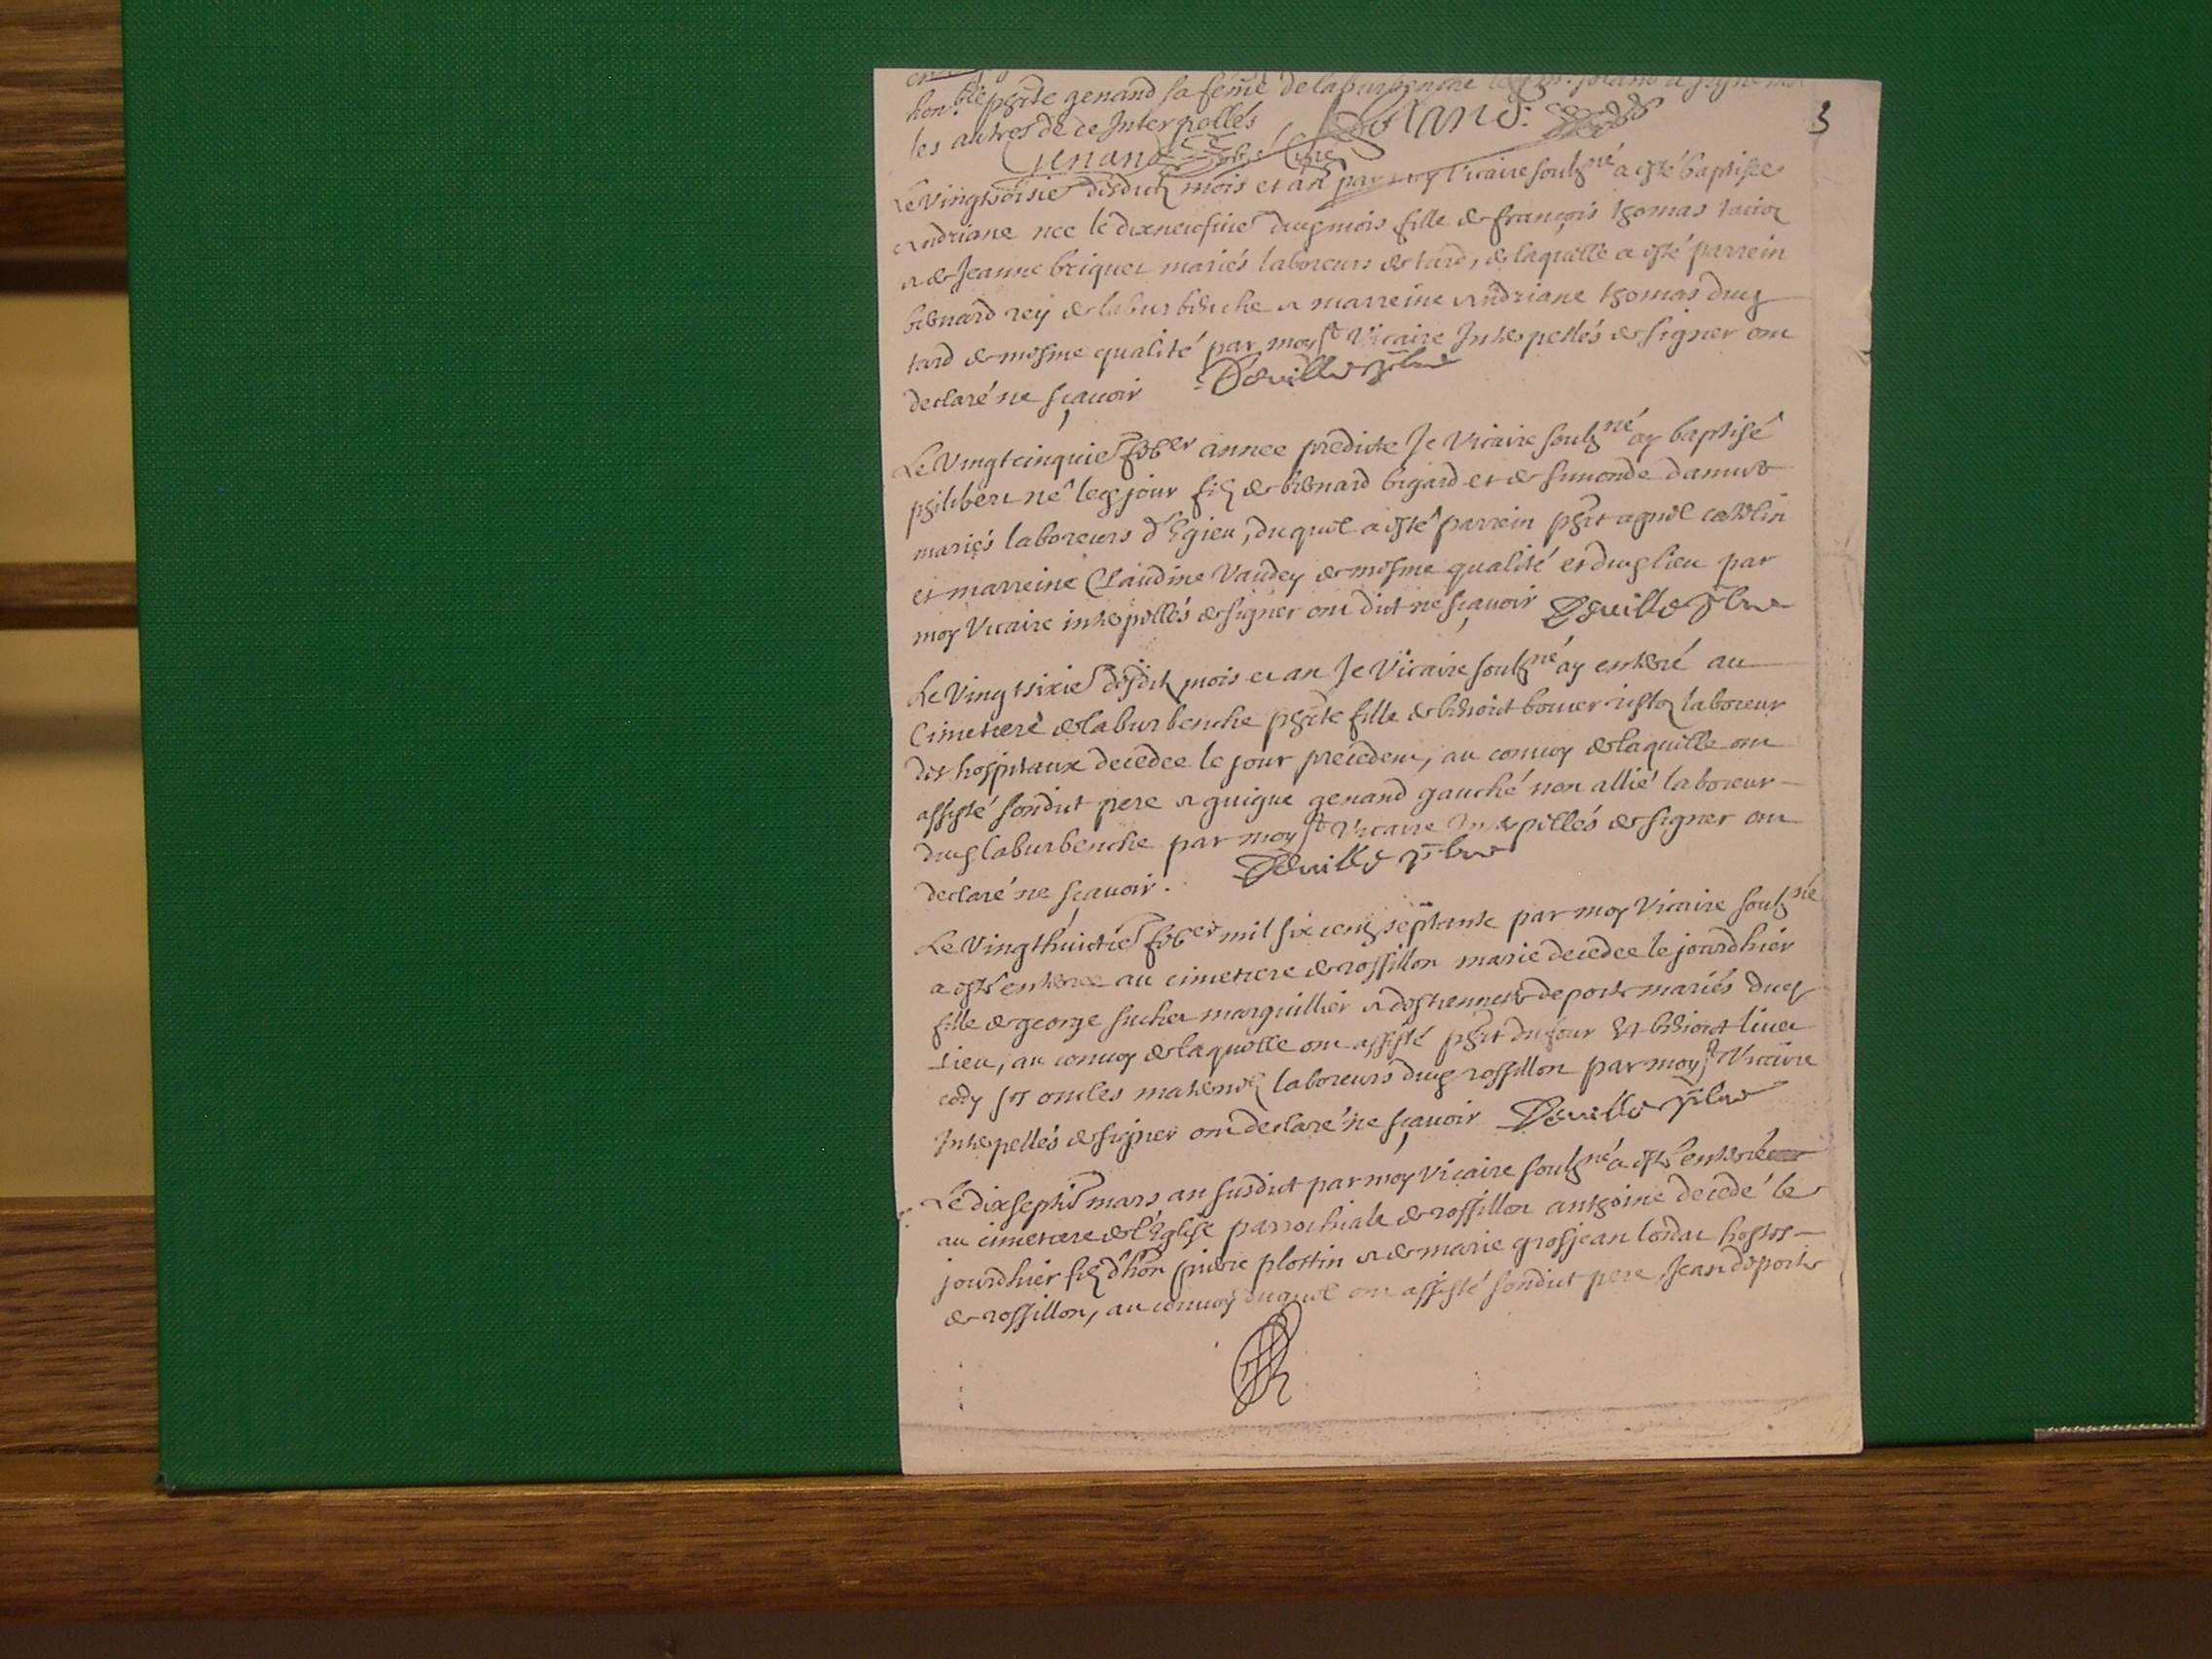 3
hon.ble phte genand sa feme de laburbenche
les autres de ce Interpellés
Genand
Le vingtroisie desdits mois et an par moy Vicaire soubzné a esté baptisee
Andriane nee le dixneufvie dud mois fille de françois thomas
et de Jeanne briquet mariés laboreurs de tard, de laquelle a esté parrein
bernard rey de laburbenche et marreine Andriane thomas dud
tard de mesme qualité par moy st Vicaire Interpellés de signer ont
declaré ne sçavoir Deville pbre
Le Vingtcinquie feber annee predicte Je Vicaire soubzné ay baptisé
philibert né led jour filz de bernard bigard et de simonde
mariés laboreurs d'Egieu, duquel a esté parrein phrt agniel
et marreine Claudine Vaudey de mesme qualité et dud lieu par
moy Vicaire interpellés de signer ont dict ne sçavoir Deville pbre
Le Vingtsixie desdits mois et an Je Vicaire soubzné ay enterré au
Cimetiere de laburbenche phrte fille de benoict laboreur
des hospitaux decedee le jour precedent, au convoy de laquelle ont
assisté sondict pere et guigue genand gauché non allié laboreur
dud laburbenche par moy st Vicaire Interpellés de signer ont
declaré ne sçavoir. Deville pbre
Le Vingthuictie feber mil six centz septante par moy Vicaire soubzné
a esté enterree au cimetiere de rossillon marie decedee le jourdhier
fille de george suchet marguillier et destiennette deporte mariés dud
Lieu, au convoy de laquelle ont assisté phrt dufour Et benoict
ses oncles maternelz laboreurs dud rossillon par moy st Vicaire
Interpellés de signer ont declaré ne sçavoir Deville pbre
Le dixseptie mars an susdict par moy Vicaire soubzné a esté enterré
au cimetiere de l'Eglise parrochiale de rossillon anthoine decedé le
jourdhier filz d'hon pierre plottin et de marie grosjean hostes
de rossillon, au convoy duquel ont assisté sondict pere, Jean deporte